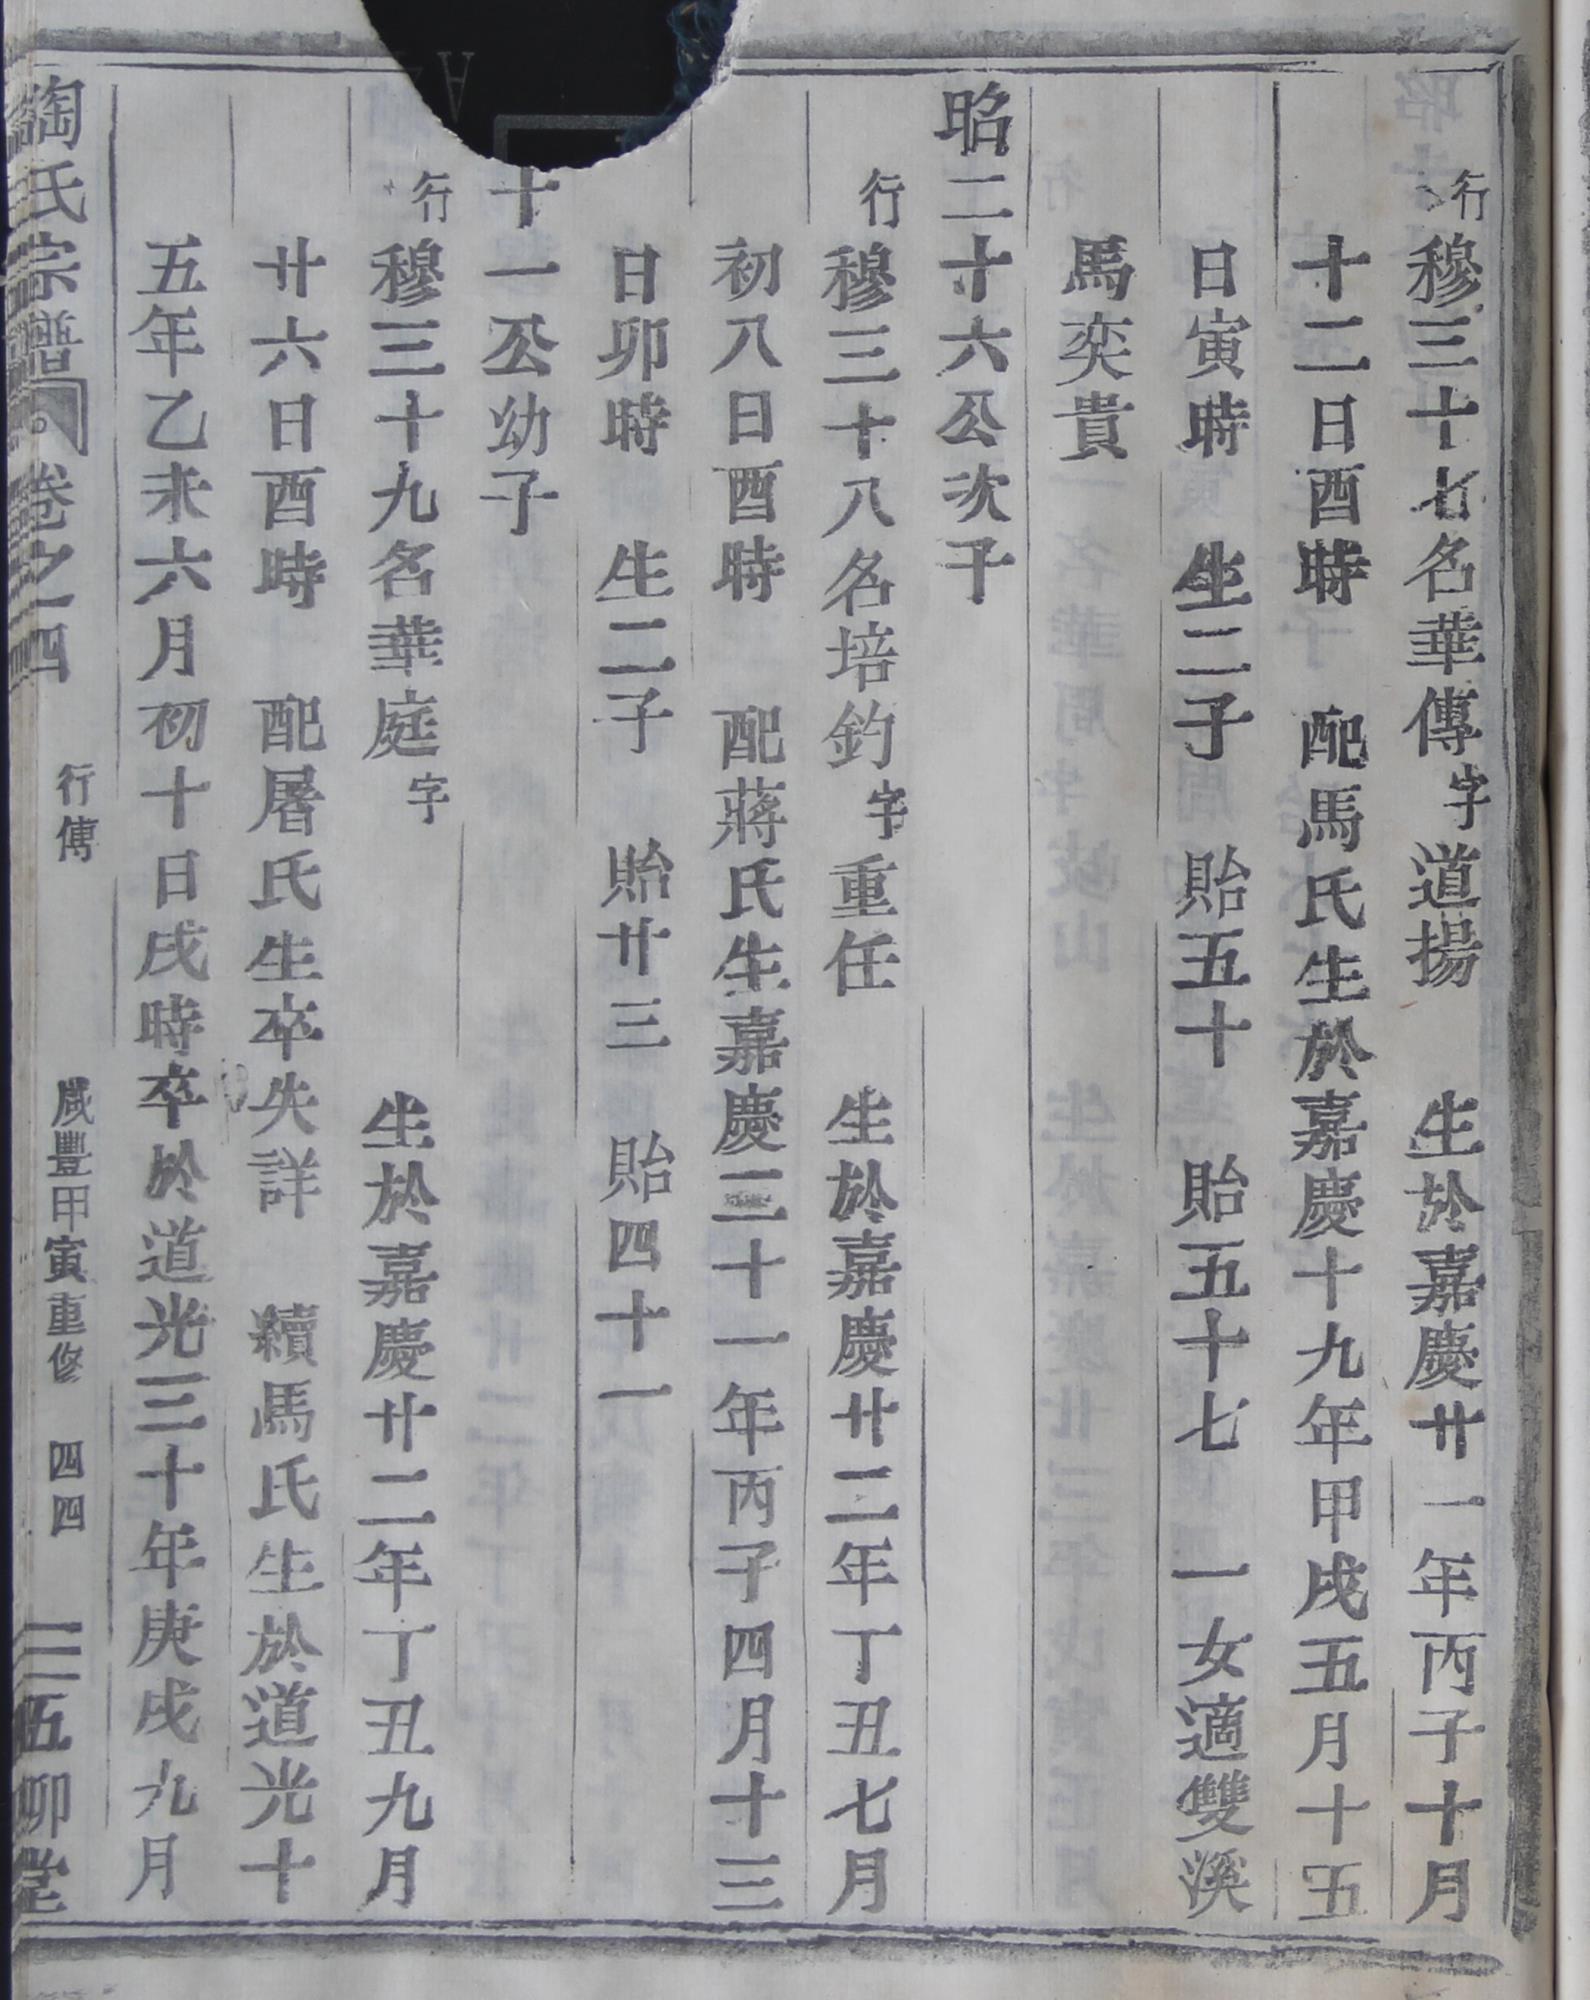 行穆三十七名華傳字道揚　生於嘉慶廿一年丙子十月
十二日酉時　配馬氏生於嘉慶十九年甲戌五月十五
日寅時　生二子　貽五十　貽五十七　一女適雙溪
馬奕貴
昭二十六公次子
行穆三十八名培鈞字重任　生於嘉慶廿二年丁丑七月
初八日酉時　配蔣氏生嘉慶二十一年丙子四月十三
日卯時　生二子　貽廿三　貽四十一
十一公幼子
行穆三十九名華庭字　　　生於嘉慶廿二年丁丑九月
廿六日酉時　配屠氏生卒失詳　續馬氏生於道光十
五年乙未六月初十日戌時卒於道光三十年庚戌九月
陶氏宗譜　卷之四　行傳　咸豐甲寅重修　四四　五柳堂